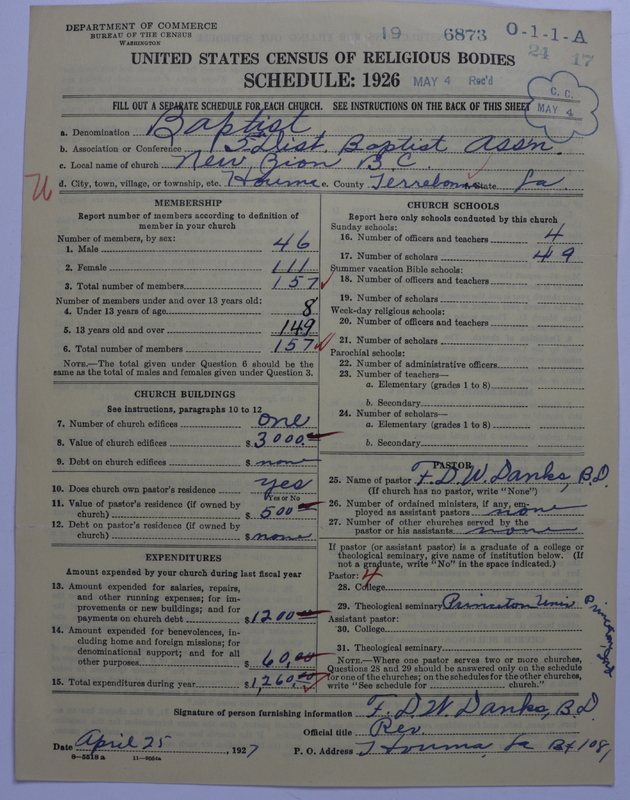 DEPARTMENT OF COMMERCE
BUREAU OF THE CENSUS
WASHINGTON
19 6873 0-1-1-A
24 17
UNITED STATES CENSUS OF RELIGIOUS BODIES
SCHEDULE: 1926
MAY 4 Rec'd
C. C.
MAY 4
FILL OUT A SEPARATE SCHEDULE FOR EACH CHURCH. SEE INSTRUCTIONS ON THE BACK OF THIS SHEET
a. Denomination Baptist
b. Association or Conference 5 Dist. Baptist Assn.
c. Local name of church New Zion B.C.
d. City, town, village, or township, etc. Houma e. County Terrebonne State La
MEMBERSHIP
Report number of members according to definition of
member in your church
Number of members, by sex:
1. Male 46
2. Female 111
3. Total number of members 157
Number of members under and over 13 years old:
4. Under 13 years of age 8
5. 13 years old and over 149
6. Total number of members 157
NOTE.—The total given under Question 6 should be the
same as the total of males and females given under Question 3.
CHURCH BUILDINGS
See instructions, paragraphs 10 to 12
7. Number of church edifices one
8. Value of church edifices $ 3000.00
9. Debt on church edifices $ none
10. Does church own pastor's residence yes
Yes or No
11. Value of pastor's residence (if owned by
church) $ 500.00
12. Debt on pastor's residence (if owned by
church) $ none
EXPENDITURES
Amount expended by your church during last fiscal year
13. Amount expended for salaries, repairs,
and other running expenses; for im-
provements or new buildings; and for
payments on church debt $ 1200.00
14. Amount expended for benevolences, in-
cluding home and foreign missions; for
denominational support; and for all
other purposes $ 60.00
15. Total expenditures during year $ 1,260.00
CHURCH SCHOOLS
Report here only schools conducted by this church
Sunday schools:
16. Number of officers and teachers 4
17. Number of scholars 49
Summer vacation Bible schools:
18. Number of officers and teachers
19. Number of scholars
Week-day religious schools:
20. Number of officers and teachers
21. Number of scholars
Parochial schools:
22. Number of administrative officers
23. Number of teachers—
a. Elementary (grades 1 to 8)
b. Secondary
24. Number of scholars—
a. Elementary (grades 1 to 8)
b. Secondary
PASTOR
25. Name of pastor F. D. W. Danks, B.D.
(If church has no pastor, write "None")
26. Number of ordained ministers, if any, em-
ployed as assistant pastors none
27. Number of other churches served by the
pastor or his assistants none
If pastor (or assistant pastor) is a graduate of a college or
theological seminary, give name of institution below. (If
not a graduate, write "No" in the space indicated.)
Pastor: 4
28. College
29. Theological seminary Princeton Univ
Assistant pastor:
30. College
31. Theological seminary
NOTE.—Where one pastor serves two or more churches,
Questions 28 and 29 should be answered only on the schedule
for one of the churches; on the schedules for the other churches,
write "See schedule for church."
Signature of person furnishing information F. D. W. Danks, B.D
Official title Rev.
Date April 25, 1927 P. O. Address Houma, La Bx 108,
8—5518 a 11—9034a